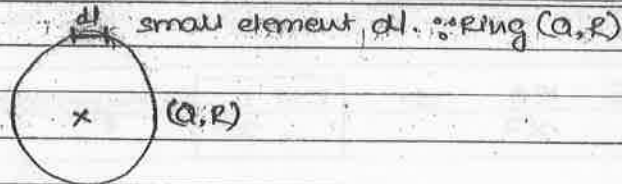 dl small element, dl. ∴ Ring (Q,R)
x (Q,R)